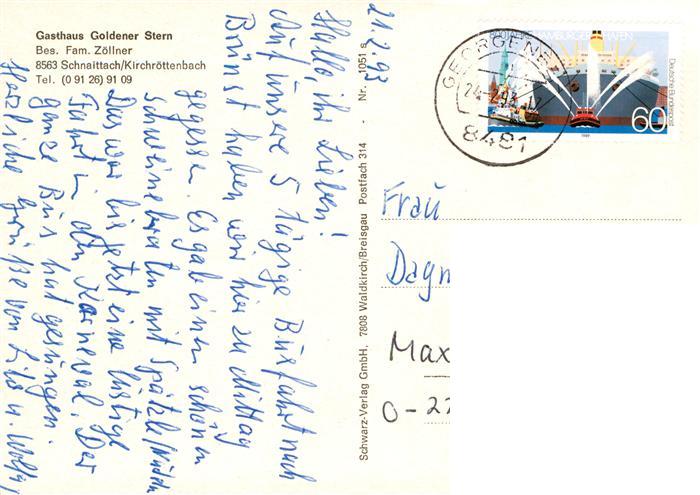 Gasthaus Goldener Stern
Bes. Fam. Zöllner
8563 Schnaittach/Kirchröttenbach
Tel. (0 91 26) 91 09
21.2.93
Hallo, ihr Lieben!
Auf unsere 5 tägige Busfahrt nach
Brünst haben wir hier zu Mittag
gegessen. Es gab einen schönen
Schweinebraten mit Spätzle/Nudeln
Das war bis jetzt eine lustige
Fahrt in den Karneval. Der
ganze Bus hat gesungen.
Herzliche Grüße von u. Wolfg
Schwarz-Verlag GmbH, 7808 Waldkirch/Breisgau Postfach 314 - Nr. 1051 s
HAMBURGER HAFEN
Deutsche Bundespost
60
1989
GEORGENB
24.-2.93
8481
Frau
Dagm
Max
O-2